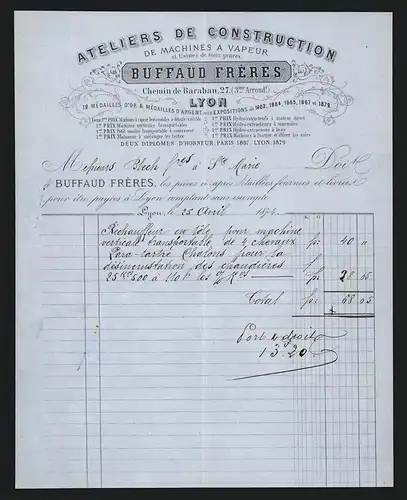 ATELIERS DE CONSTRUCTION
DE MACHINES A VAPEUR
et Usines de tous genres.
BUFFAUD FRÈRES
Chemin de Baraban, 27. (3me Arrondt.)
LYON
MÉDAILLES D'OR, MÉDAILLES D'ARGENT, aux EXPOSITIONS de 1862, 1864, 1865, 1867 et 1872
PRIX Machines verticales transportables
DEUX DIPLOMES D'HONNEUR, PARIS 1867. LYON 1872
Messieurs Bloch fres à Ste Marie Doit
à BUFFAUD FRÈRES, les pièces ci-après détaillées fournies et livrées
pour être payées à Lyon comptant sans escompte
Lyon, le 25 Avril 1874
Réchauffeur en tôle pour machine
verticale transportable de 4 chevaux fr. 40 "
Para-tartre Chalons pour la
désincrustation des chaudières
25 K 500 à 110 f. les % Kos fr. 28 05
Total fr. 68 05
Port & droit
13.20